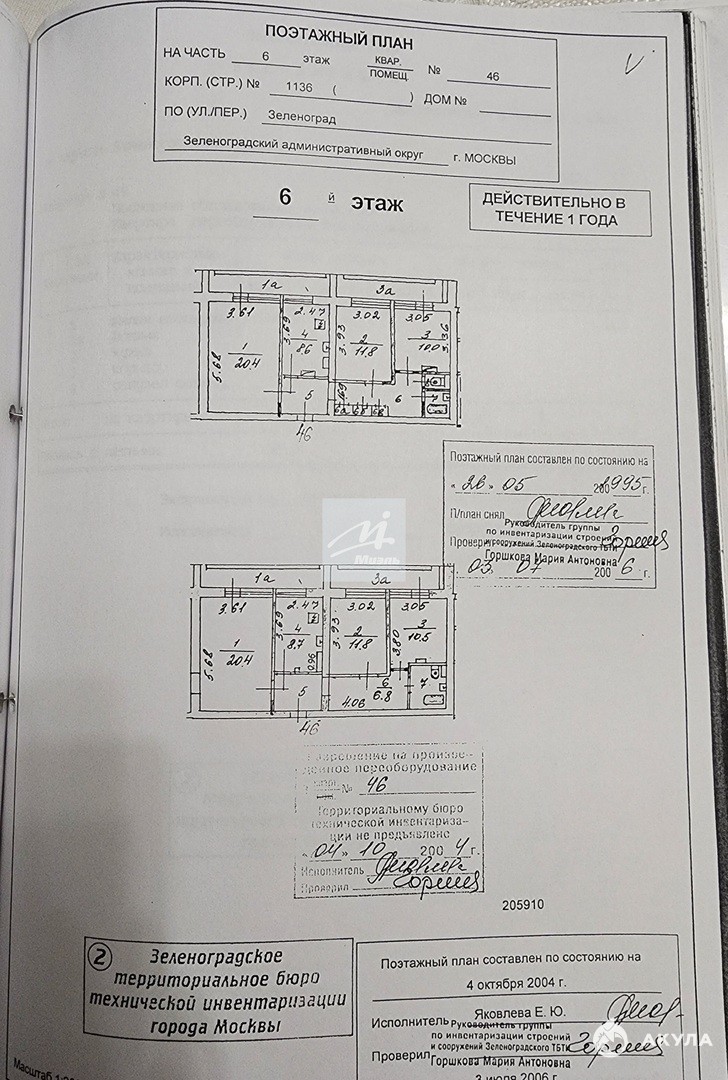 ПОЭТАЖНЫЙ ПЛАН
НА ЧАСТЬ 6 этаж КВАР. ПОМЕЩ. № 46
КОРП. (СТР.) № 1136 ( ) ДОМ №
ПО (УЛ./ПЕР.) Зеленоград
Зеленоградский административный округ г. МОСКВЫ
6 й этаж
ДЕЙСТВИТЕЛЬНО В
ТЕЧЕНИЕ 1 ГОДА
1а 3а
3.61 2.47 3.02 3.05
5.68 1 20.4 3.69 4 8.6 3.93 2 11.8 3 10.0 3.36
5 1.69 6а 6б 6в 6 7
46
Поэтажный план составлен по состоянию на
"26" 05 1995 г.
П/план снял
Руководитель группы
по инвентаризации строений
и сооружений Зеленоградского ТБТИ
Проверил
Горшкова Мария Антоновна
03. 07 200 6 г.
Миэль
1а 3а
3.61 2.47 3.02 3.05
5.68 1 20.4 3.69 4 8.7 0.96 3.93 2 11.8 3.80 3 10.5
5 4.06 6 6.8 7
46
Разрешение на произве-
денное переоборудование
№ 46
Территориальному бюро
технической инвентариза-
ции не предъявлено
"04" 10 200 4 г.
Исполнитель
Проверил
205910
2 Зеленоградское
территориальное бюро
технической инвентаризации
города Москвы
Поэтажный план составлен по состоянию на
4 октября 2004 г.
Исполнитель Яковлева Е. Ю.
Руководитель группы
по инвентаризации строений
и сооружений Зеленоградского ТБТИ
Проверил Горшкова Мария Антоновна
3 июля 2006 г.
Масштаб
АКУЛА